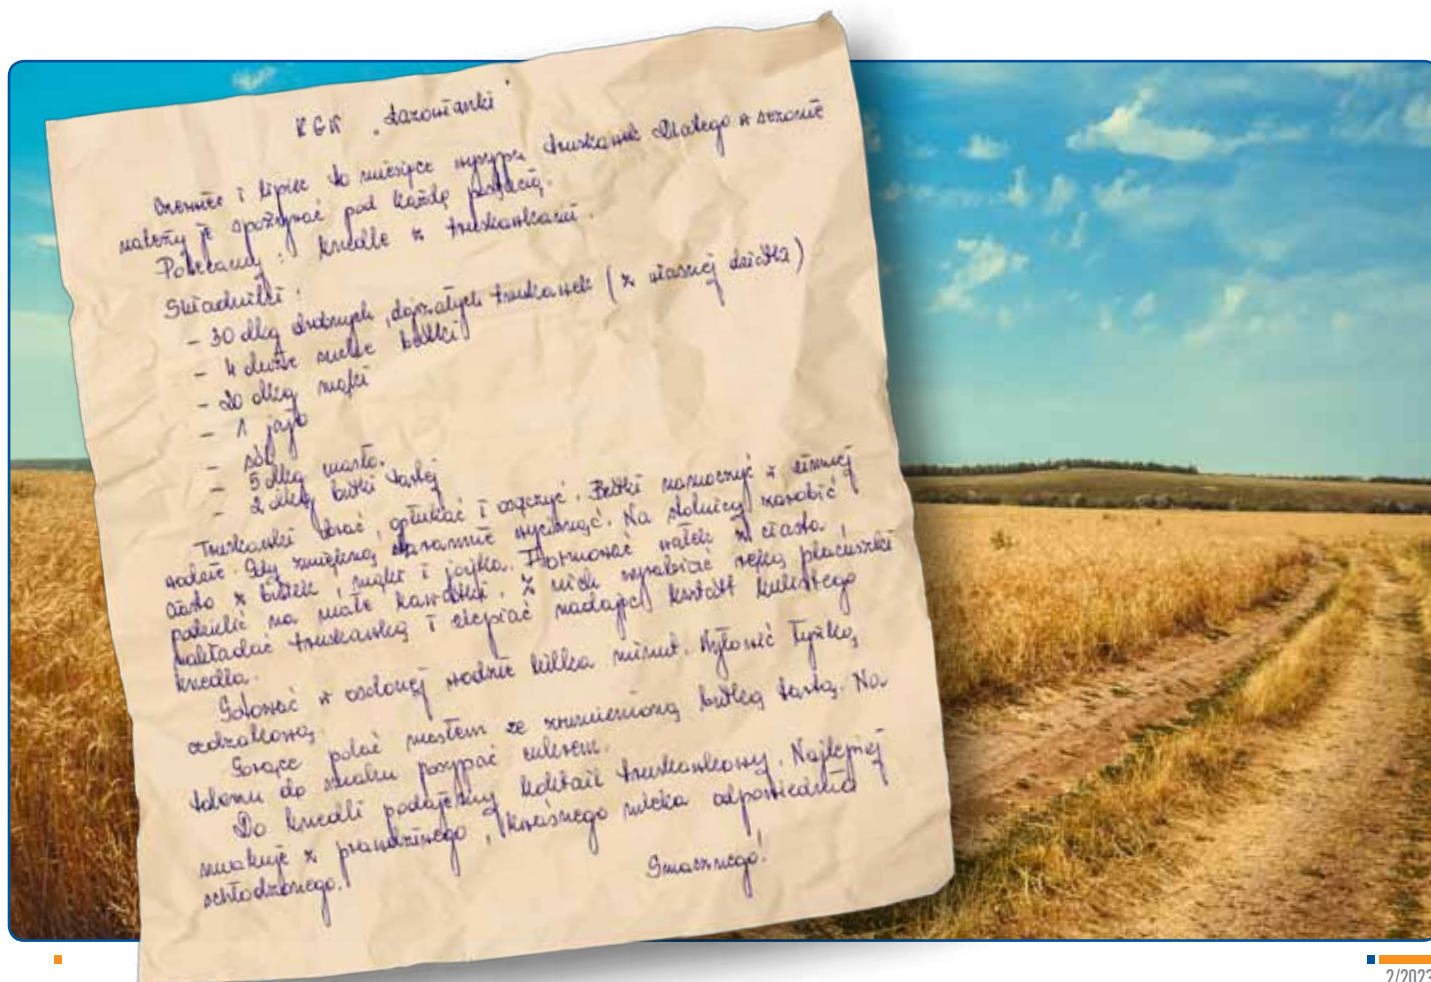 KGW „Łazowianki”
Czerwiec i lipiec to miesiące wysypu truskawek Dlatego w sezonie
należy je spożywać pod każdą postacią.
Polecamy: knedle z truskawkami.
Składniki:
- 30 dkg drobnych, dojrzałych truskawek (z własnej działki)
- 4 duże suche bułki
- 20 dkg mąki
- 1 jajo
- sól
- 5 dkg masła.
- 2 dkg bułki tartej
Truskawki obrać, opłukać i osączyć. Bułki namoczyć w zimnej
wodzie. Gdy zmiękną, starannie wycisnąć. Na stolnicy zarobić
ciasto z bułek, mąki i jajka. Formować wałek z ciasta,
podzielić na małe kawałki. Z nich wyrabiać ręką placuszki
nakładać truskawką i zlepiać nadając kształt kulistego
knedla.
Gotować w osolonej wodzie kilka minut. Wyłowić łyżką
cedzakową.
Gorące polać masłem ze zrumienioną bułką tartą. Na
talerzu do smaku posypać cukrem.
Do knedli podajemy koktail truskawkowy. Najlepiej
smakuje z prawdziwego, kwaśnego mleka odpowiednio
schłodzonego.
Smacznego!
2/2023